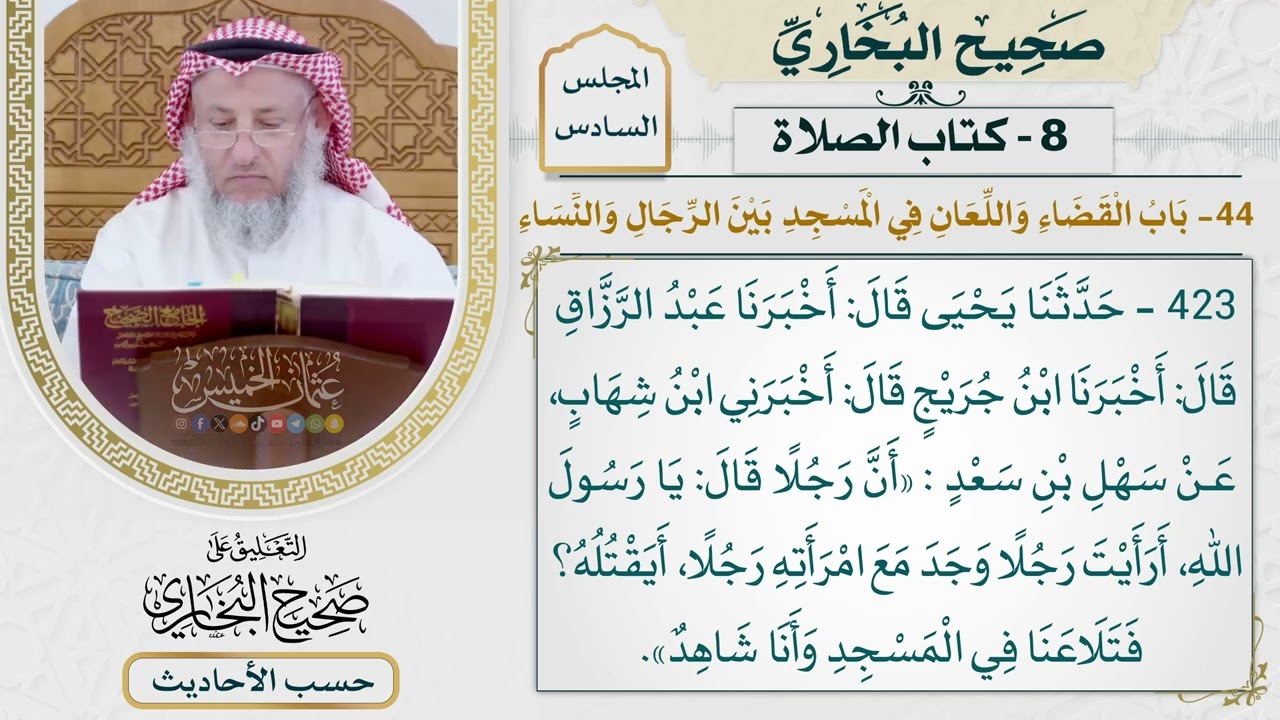 صَحِيح البُخَارِيِّ
8 - كتاب الصلاة
المجلس
السادس
44- بَابُ الْقَضَاءِ وَاللِّعَانِ فِي الْمَسْجِدِ بَيْنَ الرِّجَالِ وَالنِّسَاءِ
423 - حَدَّثَنَا يَحْيَى قَالَ: أَخْبَرَنَا عَبْدُ الرَّزَّاقِ
قَالَ: أَخْبَرَنَا ابْنُ جُرَيْجٍ قَالَ: أَخْبَرَنِي ابْنُ شِهَابٍ،
عَنْ سَهْلِ بْنِ سَعْدٍ : «أَنَّ رَجُلًا قَالَ: يَا رَسُولَ
اللهِ، أَرَأَيْتَ رَجُلًا وَجَدَ مَعَ امْرَأَتِهِ رَجُلًا، أَيَقْتُلُهُ؟
فَتَلَاعَنَا فِي الْمَسْجِدِ وَأَنَا شَاهِدٌ».
الجامع الصحيح
عثمان الخميس
التَّعْلِيقُ عَلَى
صَحِيحِ الْبُخَارِي
حسب الأحاديث